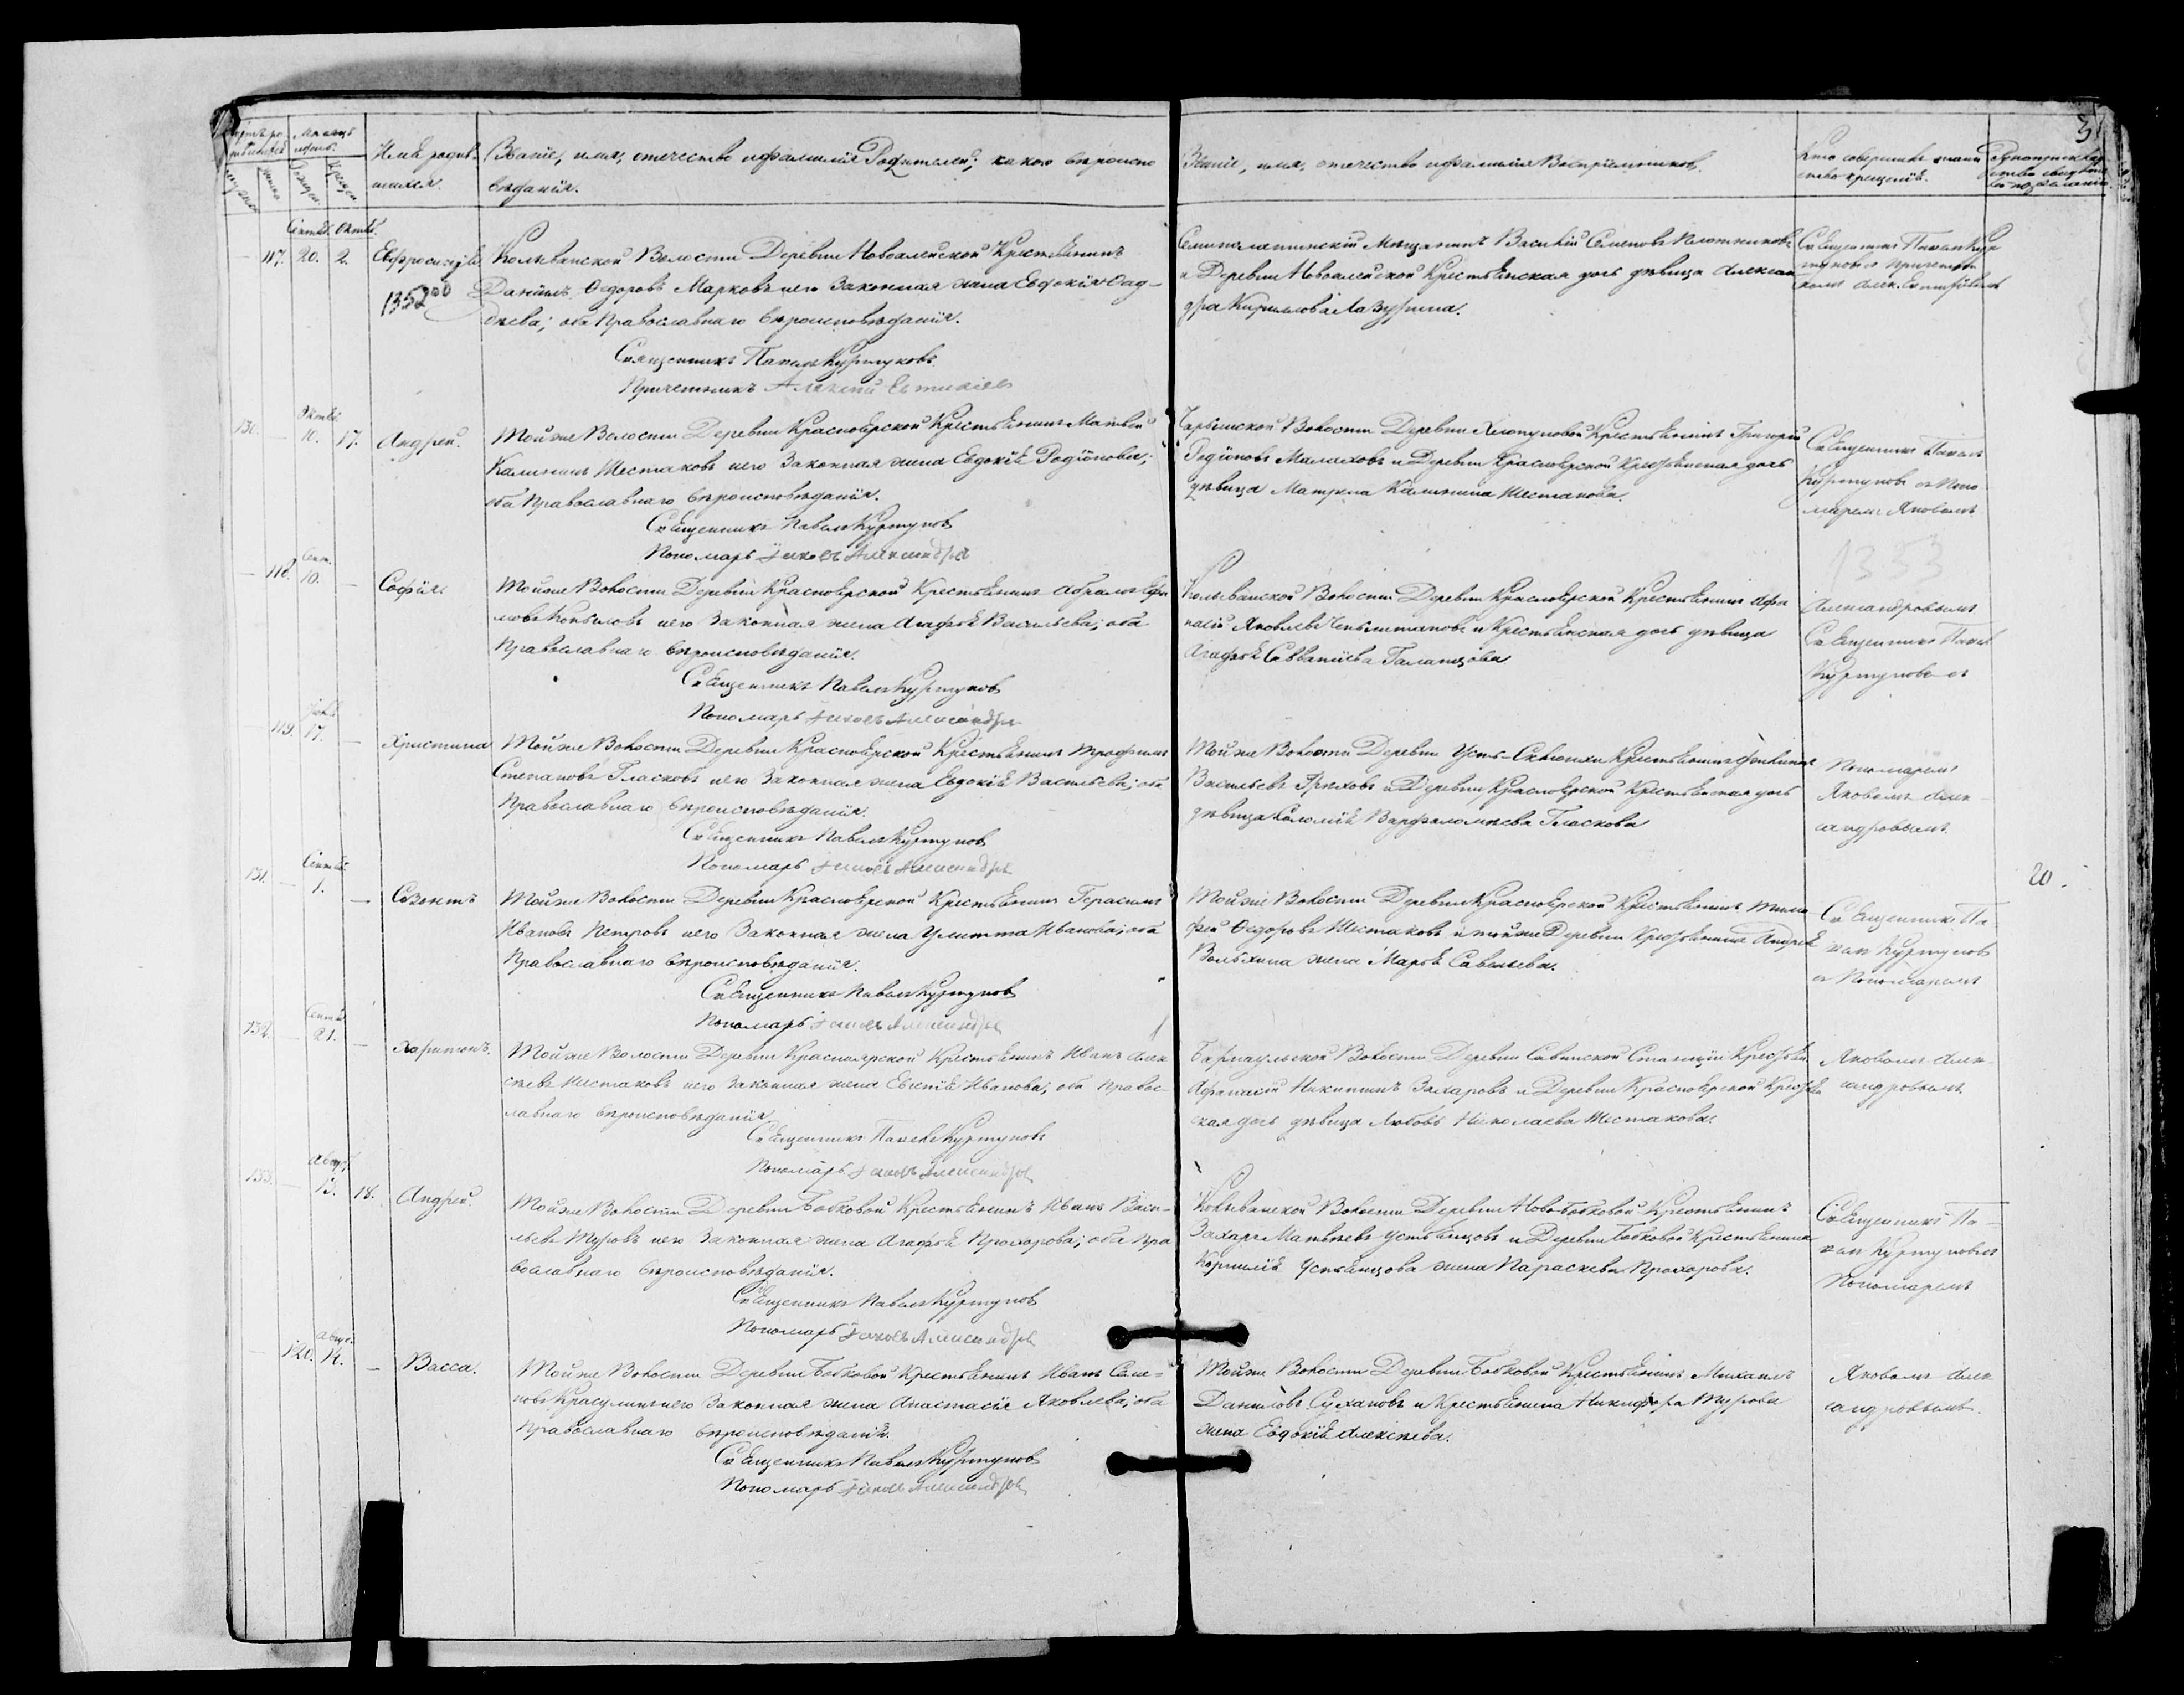 Имѣ родив-
шихся.
Званіе, имя, отечество и фамилія Родителей; какого вѣроиспо
вѣданія.
Званіе, имя, отечество и фамилія Воспріемниковъ.
Кто совершилъ таин
ство крещенія.
3
Сентяб. Октяб.
117. 20. 2. Евфросинія
1352
Колыванской Волости Деревни Новоалейской Крестьянинъ
Даніилъ Ѳедоровъ Марковъ и его Законная жена Евдокія Ѳад-
дѣева; оба Православнаго вѣроисповѣданія.
Священникъ Павелъ Куртуковъ
Причетникъ Алексѣй
Семипалатинскій Мѣщанинъ Василій Семеновъ Плотниковъ
и Деревни Новоалейской Крестьянская дочь дѣвица Алексан
дра Кириллова Лазурина.
Священникъ Павелъ Кур
туковъ съ причетни
комъ Алек.
130. Октяб. 10. 17. Андрей.
Той же Волости Деревни Красноярской Крестьянинъ Матвей
Калининъ Шестаковъ и его Законная жена Евдокія Родіонова;
оба Православнаго вѣроисповѣданія.
Священникъ Павелъ Куртуковъ
Пономарь Яковъ Александровъ
Чарышской Волости Деревни Хлопуновой Крестьянинъ Григорій
Родіоновъ Малаховъ и Деревни Красноярской Крестьянская дочь
дѣвица Матрена Калинина Шестакова.
Священникъ Павелъ
Куртуковъ съ Поно
маремъ Яковомъ
1353
118. Сент. 10. — Софія.
Той же Волости Деревни Красноярской Крестьянинъ Абрамъ Ефи
мовъ Копыловъ и его Законная жена Агафья Васильева; оба
Православнаго вѣроисповѣданія.
Священникъ Павелъ Куртуковъ
Пономарь Яковъ Александровъ
Колыванской Волости Деревни Красноярской Крестьянинъ Афа
насій Яковлевъ и Крестьянская дочь дѣвица
Агафья Савватіева Галанцова
Александровымъ
Священникъ Павелъ
Куртуковъ съ
119. 17. — Христина
Той же Волости Деревни Красноярской Крестьянинъ Трофимъ
Степановъ Гласковъ и его Законная жена Евдокія Васильева; оба
Православнаго вѣроисповѣданія.
Священникъ Павелъ Куртуковъ
Пономарь Яковъ Александровъ
Той же Волости Деревни Усть-Склюихи Крестьянинъ
Васильевъ Грѣховъ и Деревни Красноярской Крестьянская дочь
дѣвица Соломія Варфаломѣева Гласкова
Пономаремъ
Яковомъ Алек
сандровымъ.
131. Сентяб. 1. — Созонтъ
Той же Волости Деревни Красноярской Крестьянинъ Герасимъ
Ивановъ Петровъ и его Законная жена Улитта Иванова; оба
Православнаго вѣроисповѣданія.
Священникъ Павелъ Куртуковъ
Пономарь Яковъ Александровъ
Той же Волости Деревни Красноярской Крестьянинъ Тимо
фей Ѳедоровъ Шестаковъ и той же Деревни Крестьянина Андрея
Волыхина жена Марья Савельева.
Священникъ Па
велъ Куртуковъ
съ Пономаремъ
20.
132. Сентяб. 21. — Харитонъ.
Той же Волости Деревни Красноярской Крестьянинъ Иванъ Алек
сѣевъ Шестаковъ и его Законная жена Евгенія Иванова; оба Правос-
лавнаго вѣроисповѣданія
Священникъ Павелъ Куртуковъ
Пономарь Яковъ Александровъ
Барнаульской Волости Деревни Савинской Станціи Крестьян.
Афанасій Никитинъ Захаровъ и Деревни Красноярской Крестьян
ская дочь дѣвица Любовь Николаева Шестакова.
Яковомъ Алек-
сандровымъ.
133. Август. 13. 18. Андрей.
Той же Волости Деревни Бобковой Крестьянинъ Иванъ Васи-
льевъ Туровъ и его Законная жена Агафья Прохорова; оба Пра
вославнаго вѣроисповѣданія.
Священникъ Павелъ Куртуковъ
Пономарь Яковъ Александровъ
Колыванской Волости Деревни Ново-Бобковой Крестьянинъ
Захаръ Матвѣевъ Устьянцовъ и Деревни Бобковой Крестьянина
Корнилія Устьянцова жена Параскева Прохорова.
Священникъ Па-
велъ Куртуковъ
Пономаремъ
120. Авгус. 14. — Васса.
Той же Волости Деревни Бобковой Крестьянинъ Иванъ Семе-
новъ Красулинъ и его Законная жена Анастасія Яковлева; оба
Православнаго вѣроисповѣданія.
Священникъ Павелъ Куртуковъ
Пономарь Яковъ Александровъ
Той же Волости Деревни Бобковой Крестьянинъ Михаилъ
Даниловъ Сухановъ и Крестьянина Никифора Турова
жена Евдокія Алексѣева.
Яковомъ Алек
сандровымъ.